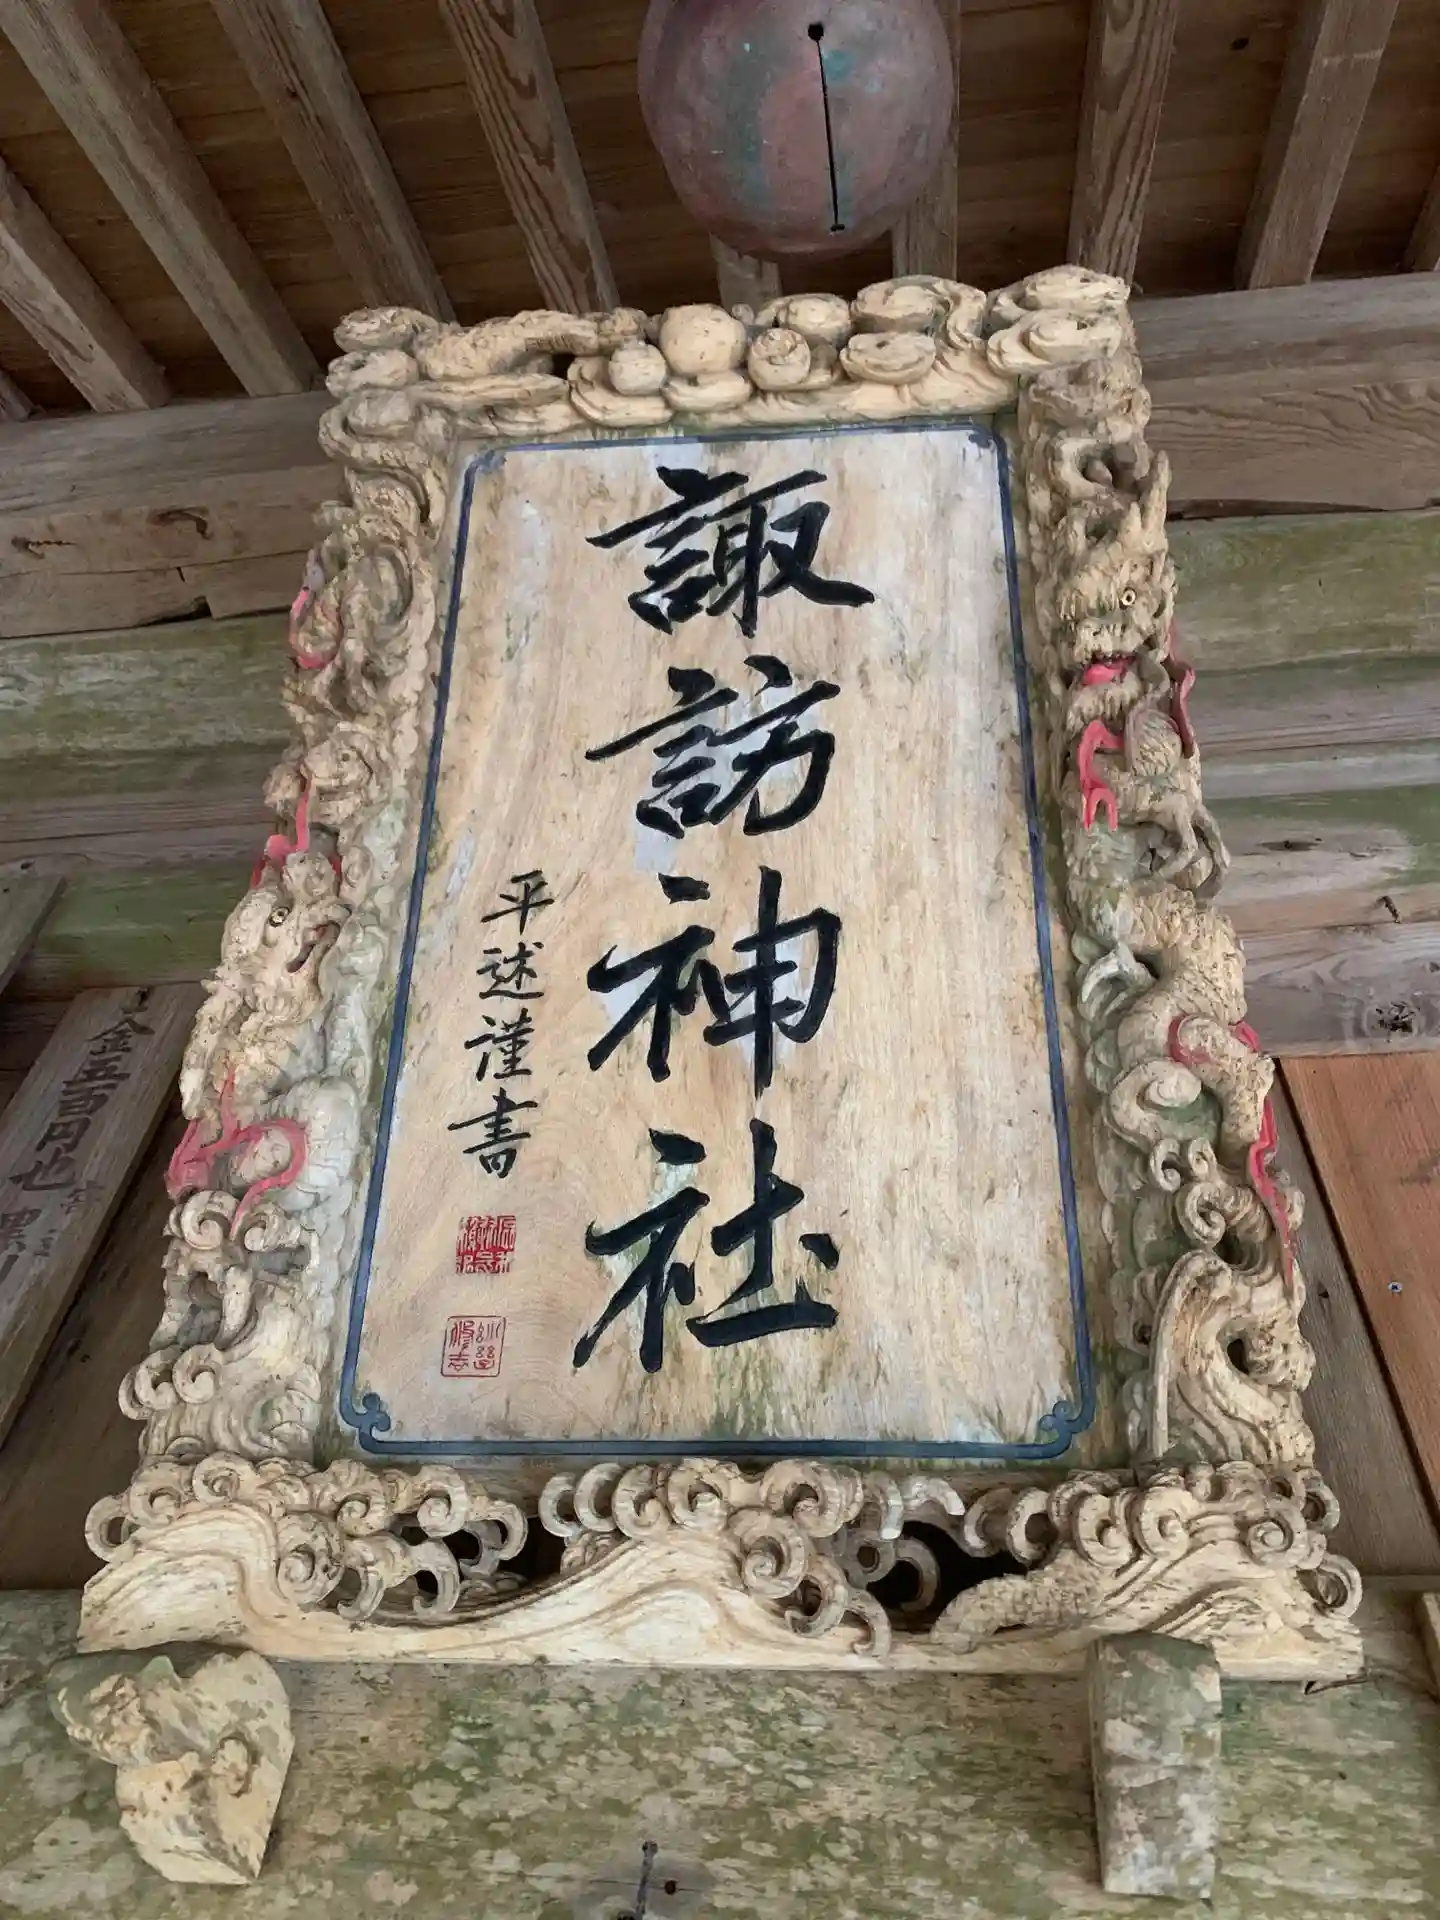 諏訪神社
平述謹書
金五百円也